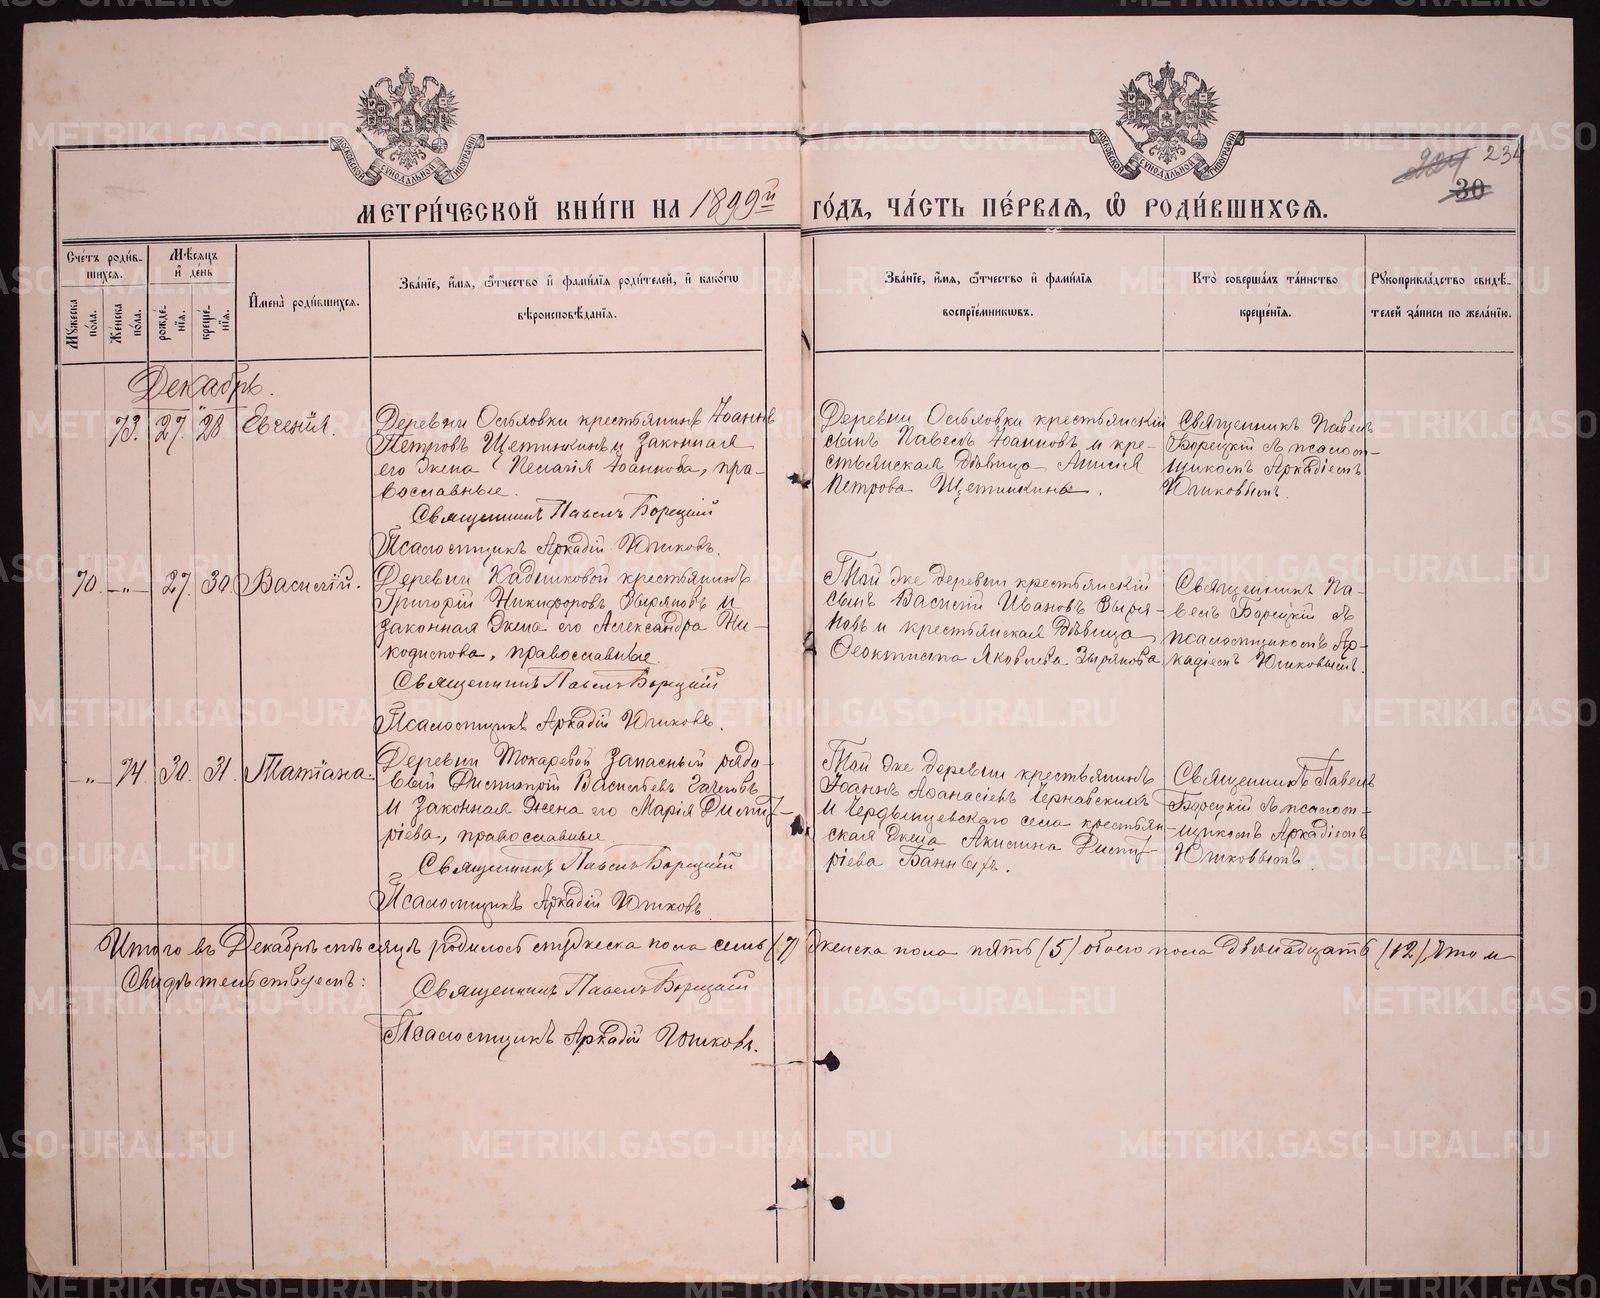 224 234
30
МЕТРИ́ЧЕСКОЙ КНИ́ГИ НА 1899й ГО́ДЪ, ЧА́СТЬ ПЕ́РВАЯ, Ѡ РОДИ́ВШИХСЯ.
Сче́тъ роди́в-
шихся.
Мꙋжеска по́ла.
Же́нска по́ла.
Мѣ́сяцъ и҆ де́нь
рожде́-
нїя.
креще́-
нїя.
И҆мена̀ роди́вшихся.
Зва́нїе, и҆́мя, ѻ҆́тчество и҆ фами́лїя роди́телей, и҆ како́гѡ
вѣроисповѣ́данїя.
Зва́нїе, и҆́мя, ѻ҆́тчество и҆ фами́лїя
воспрїе́мникѡвъ.
Кто̀ соверша́лъ та́инство
креще́нїя.
Рꙋкоприкла́дство свидѣ́-
телей за́писи по жела́нїю.
Декабрь.
73. 27. 28. Евгенія.
Деревни Осѣловки крестьянинъ Іоаннъ
Петровъ Щетинкинъ и законная
его жена Пелагія Іоаннова, пра-
вославные.
Священникъ Павелъ Борецкій
Псаломщикъ Аркадій Юшковъ.
Деревни Осѣловки крестьянскій
сынъ Павелъ Іоанновъ и кре-
стьянская дѣвица Анисія
Петрова Щетинкины.
Священникъ Павелъ
Борецкій съ псалом-
щикомъ Аркадіемъ
Юшковымъ.
70. -„- 27. 30. Василій.
Деревни Кадниковой крестьянинъ
Григорій Никифоровъ Зыряновъ и
законная жена его Александра Ни-
кодимова, православные.
Священникъ Павелъ Борецкій
Псаломщикъ Аркадій Юшковъ.
Той же деревни крестьянскій
сынъ Василій Ивановъ Зыря-
новъ и крестьянская дѣвица
Ѳеоктиста Яковлева Зырянова
Священникъ Па-
велъ Борецкій съ
псаломщикомъ Ар-
кадіемъ Юшковымъ.
-„- 74. 30. 31. Татіана.
Деревни Токаревой запасный рядо-
вый Димитрій Васильевъ
и законная жена его Марія Димит-
ріева, православные.
Священникъ Павелъ Борецкій
Псаломщикъ Аркадій Юшковъ
Той же деревни крестьянинъ
Іоаннъ Аѳанасіевъ Чернавскихъ
и Чердынцевскаго села крестьян-
ская жена Акилина Димит-
ріева Банныхъ.
Священникъ Павелъ
Борецкій съ псалом-
щикомъ Аркадіемъ
Юшковымъ.
Итого въ Декабрѣ мѣсяцѣ родилось мужеска пола семь (7) женска пола пять (5) обоего пола двѣнадцать (12), что и
Свидѣтельствуемъ:
Священникъ Павелъ Борецкій
Псаломщикъ Аркадій Юшковъ.
METRIKI.GASO-URAL.RU